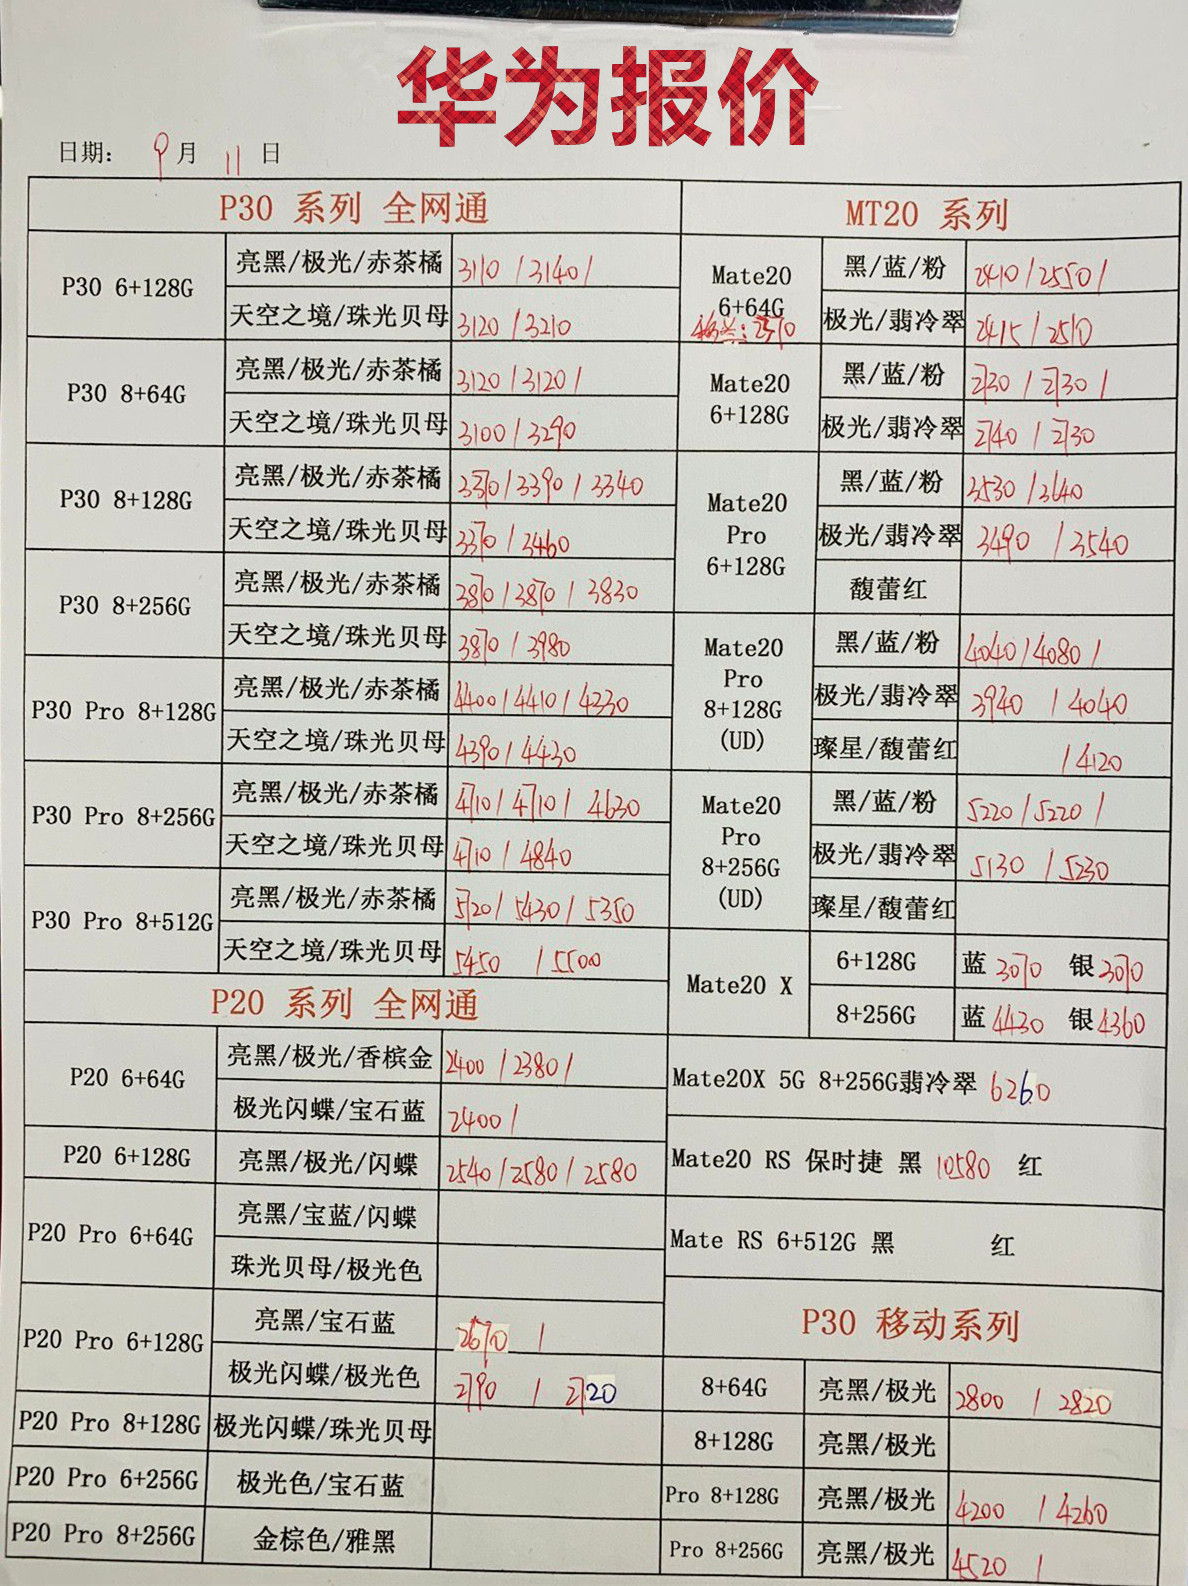 华为报价
日期： 9月 11日
P30 系列 全网通
P30 6+128G 亮黑/极光/赤茶橘 3110 / 3140 /
天空之境/珠光贝母 3120 / 3210
P30 8+64G 亮黑/极光/赤茶橘 3120 / 3120 /
天空之境/珠光贝母 3100 / 3290
P30 8+128G 亮黑/极光/赤茶橘 3370 / 3390 / 3340
天空之境/珠光贝母 3370 / 3460
P30 8+256G 亮黑/极光/赤茶橘 3870 / 3870 / 3830
天空之境/珠光贝母 3870 / 3980
P30 Pro 8+128G 亮黑/极光/赤茶橘 4400 / 4410 / 4330
天空之境/珠光贝母 4390 / 4430
P30 Pro 8+256G 亮黑/极光/赤茶橘 4710 / 4710 / 4630
天空之境/珠光贝母 4710 / 4840
P30 Pro 8+512G 亮黑/极光/赤茶橘 5720 / 5430 / 5350
天空之境/珠光贝母 5450 / 5500
P20 系列 全网通
P20 6+64G 亮黑/极光/香槟金 2400 / 2380 /
极光闪蝶/宝石蓝 2400 /
P20 6+128G 亮黑/极光/闪蝶 2540 / 2580 / 2580
P20 Pro 6+64G 亮黑/宝蓝/闪蝶
珠光贝母/极光色
P20 Pro 6+128G 亮黑/宝石蓝 2670 /
极光闪蝶/极光色 2790 / 2720
P20 Pro 8+128G 极光闪蝶/珠光贝母
P20 Pro 6+256G 极光色/宝石蓝
P20 Pro 8+256G 金棕色/雅黑
MT20 系列
Mate20 6+64G 黑/蓝/粉 2410 / 2550 /
极光/翡冷翠 2415 / 2510
Mate20 6+128G 黑/蓝/粉 2730 / 2730 /
极光/翡冷翠 2740 / 2730
Mate20 Pro 6+128G 黑/蓝/粉 3530 / 3640
极光/翡冷翠 3490 / 3540
馥蕾红
Mate20 Pro 8+128G (UD) 黑/蓝/粉 4040 / 4080 /
极光/翡冷翠 3940 / 4040
璨星/馥蕾红 / 4120
Mate20 Pro 8+256G (UD) 黑/蓝/粉 5220 / 5220 /
极光/翡冷翠 5130 / 5230
璨星/馥蕾红
Mate20 X 6+128G 蓝 3070 银 3070
8+256G 蓝 4430 银 4360
Mate20X 5G 8+256G翡冷翠 6260
Mate20 RS 保时捷 黑 10580 红
Mate RS 6+512G 黑 红
P30 移动系列
8+64G 亮黑/极光 2800 / 2820
8+128G 亮黑/极光
Pro 8+128G 亮黑/极光 4200 / 4260
Pro 8+256G 亮黑/极光 4520 /